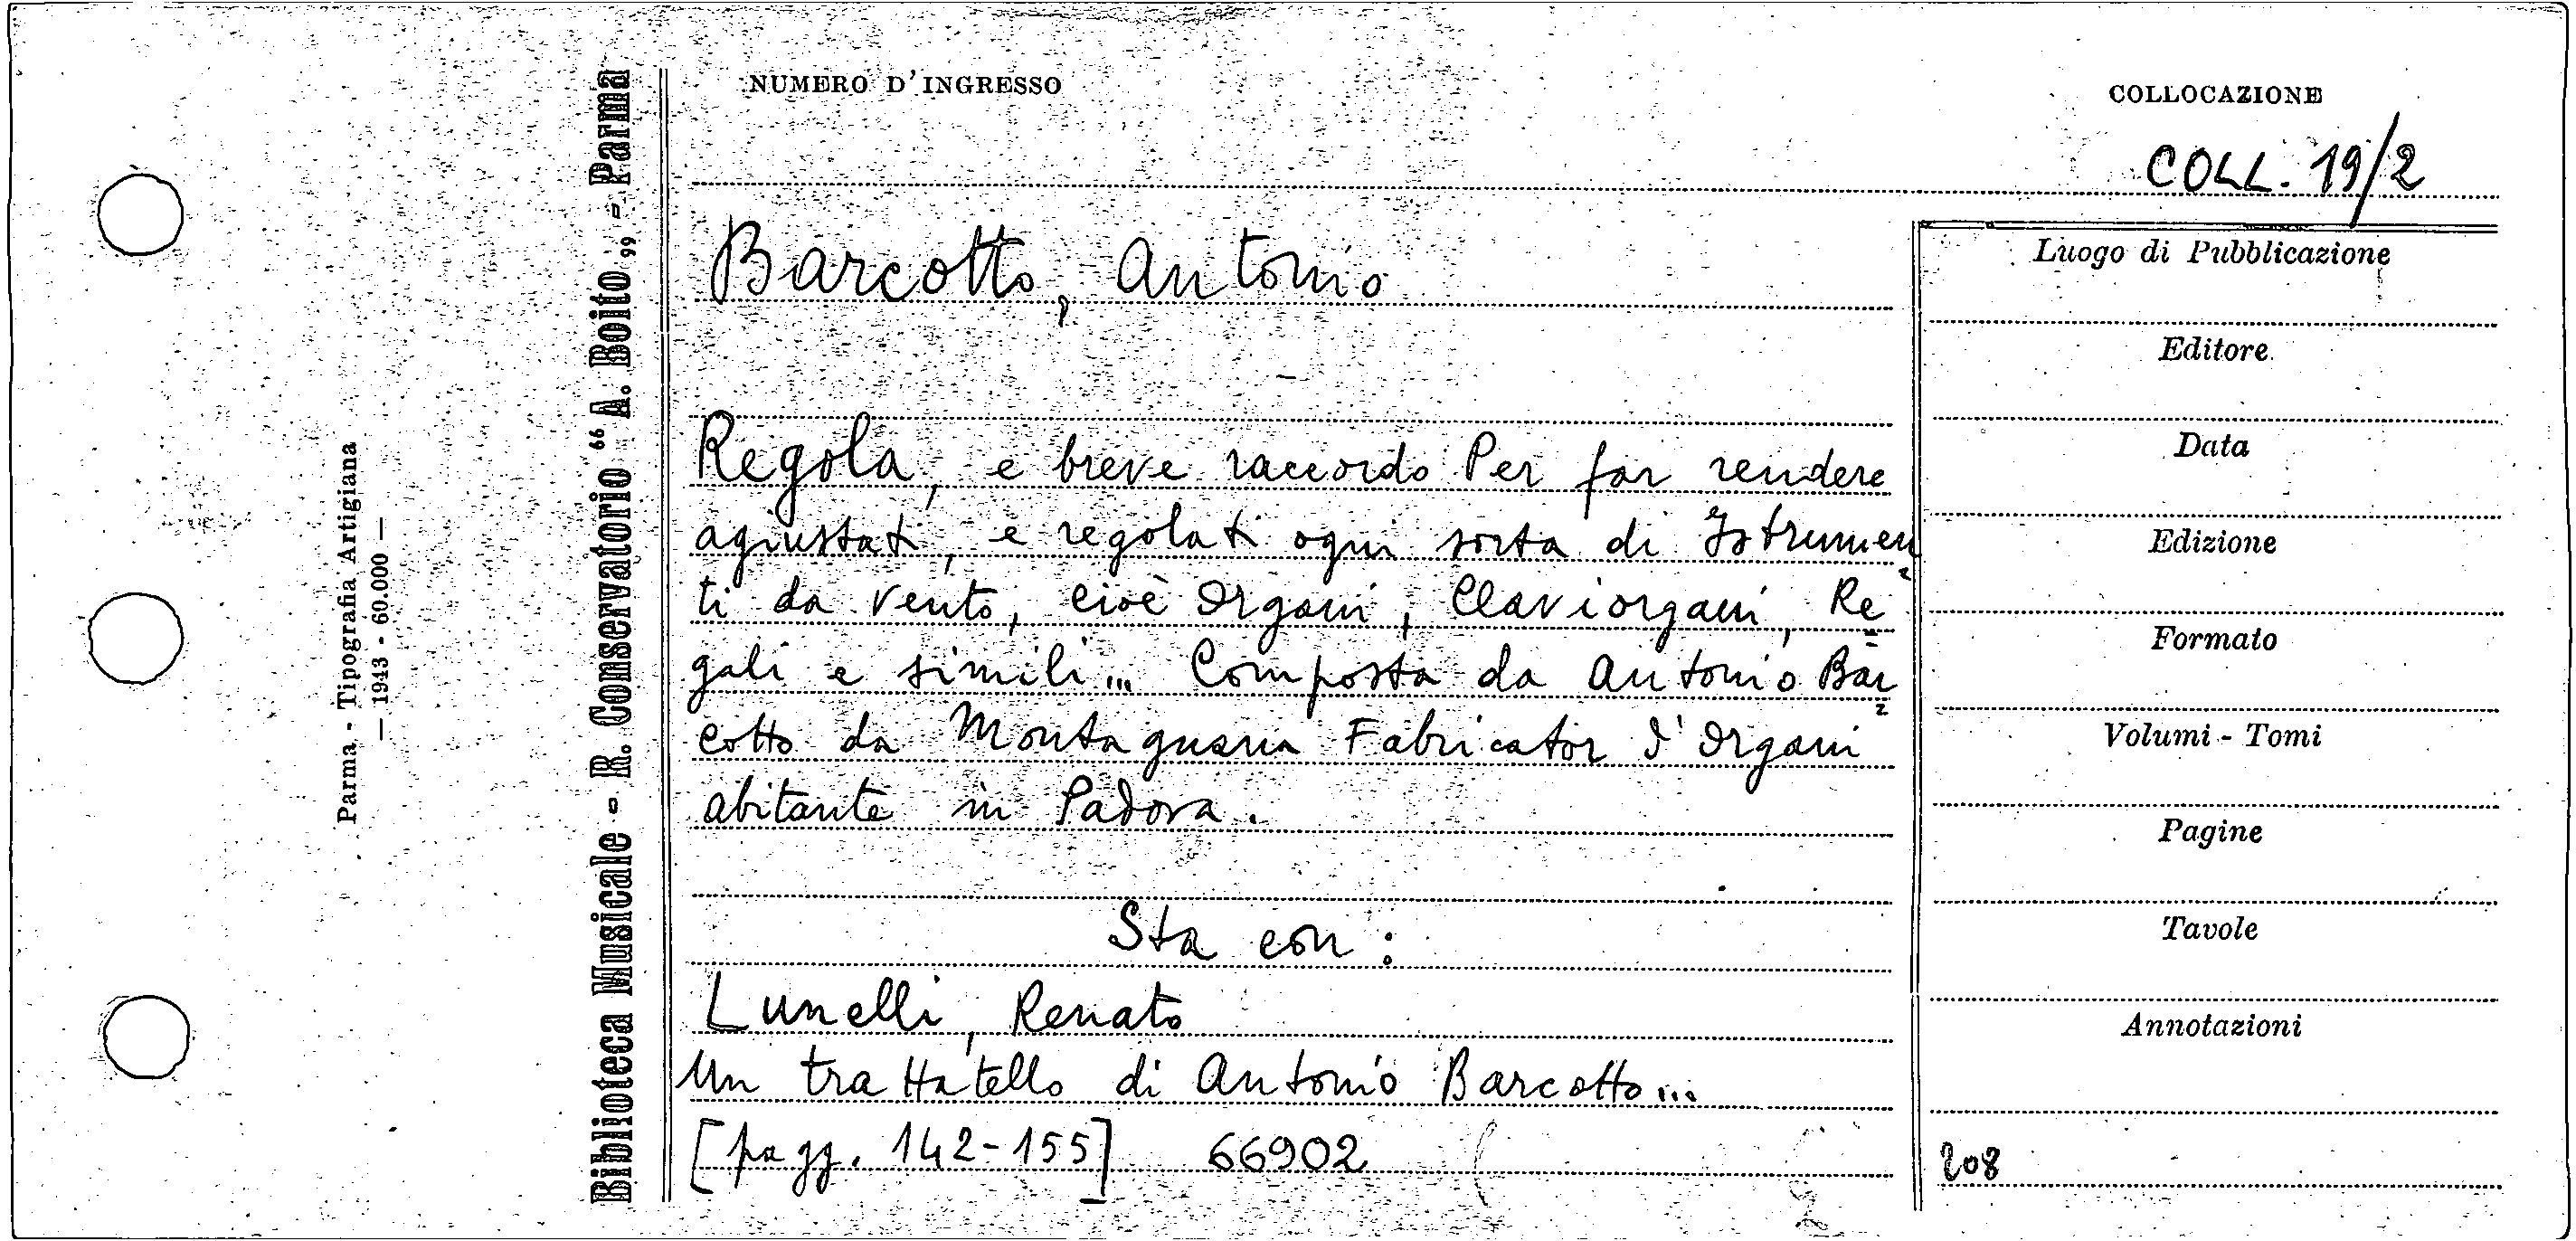 NUMERO D'INGRESSO
COLLOCAZIONE
COLL. 19/2
Barcotto, Antonio
Regola, e breve raccordo Per far rendere
agiustati, e regolati ogni sorta di Istrumen
ti da vento, cioè Organi, Claviorgani, Re
gali e simili... Composta da Antonio Bar
cotto da Montagnana Fabricator d'Organi
abitante in Padova.
Sta con:
Lunelli, Renato
Un trattatello di Antonio Barcotto...
[pagg. 142-155] 66902
Luogo di Pubblicazione
Editore
Data
Edizione
Formato
Volumi - Tomi
Pagine
Tavole
Annotazioni
208
Biblioteca Musicale - R. Conservatorio “A. Boito„ - Parma
Parma - Tipografia Artigiana
— 1943 - 60.000 —